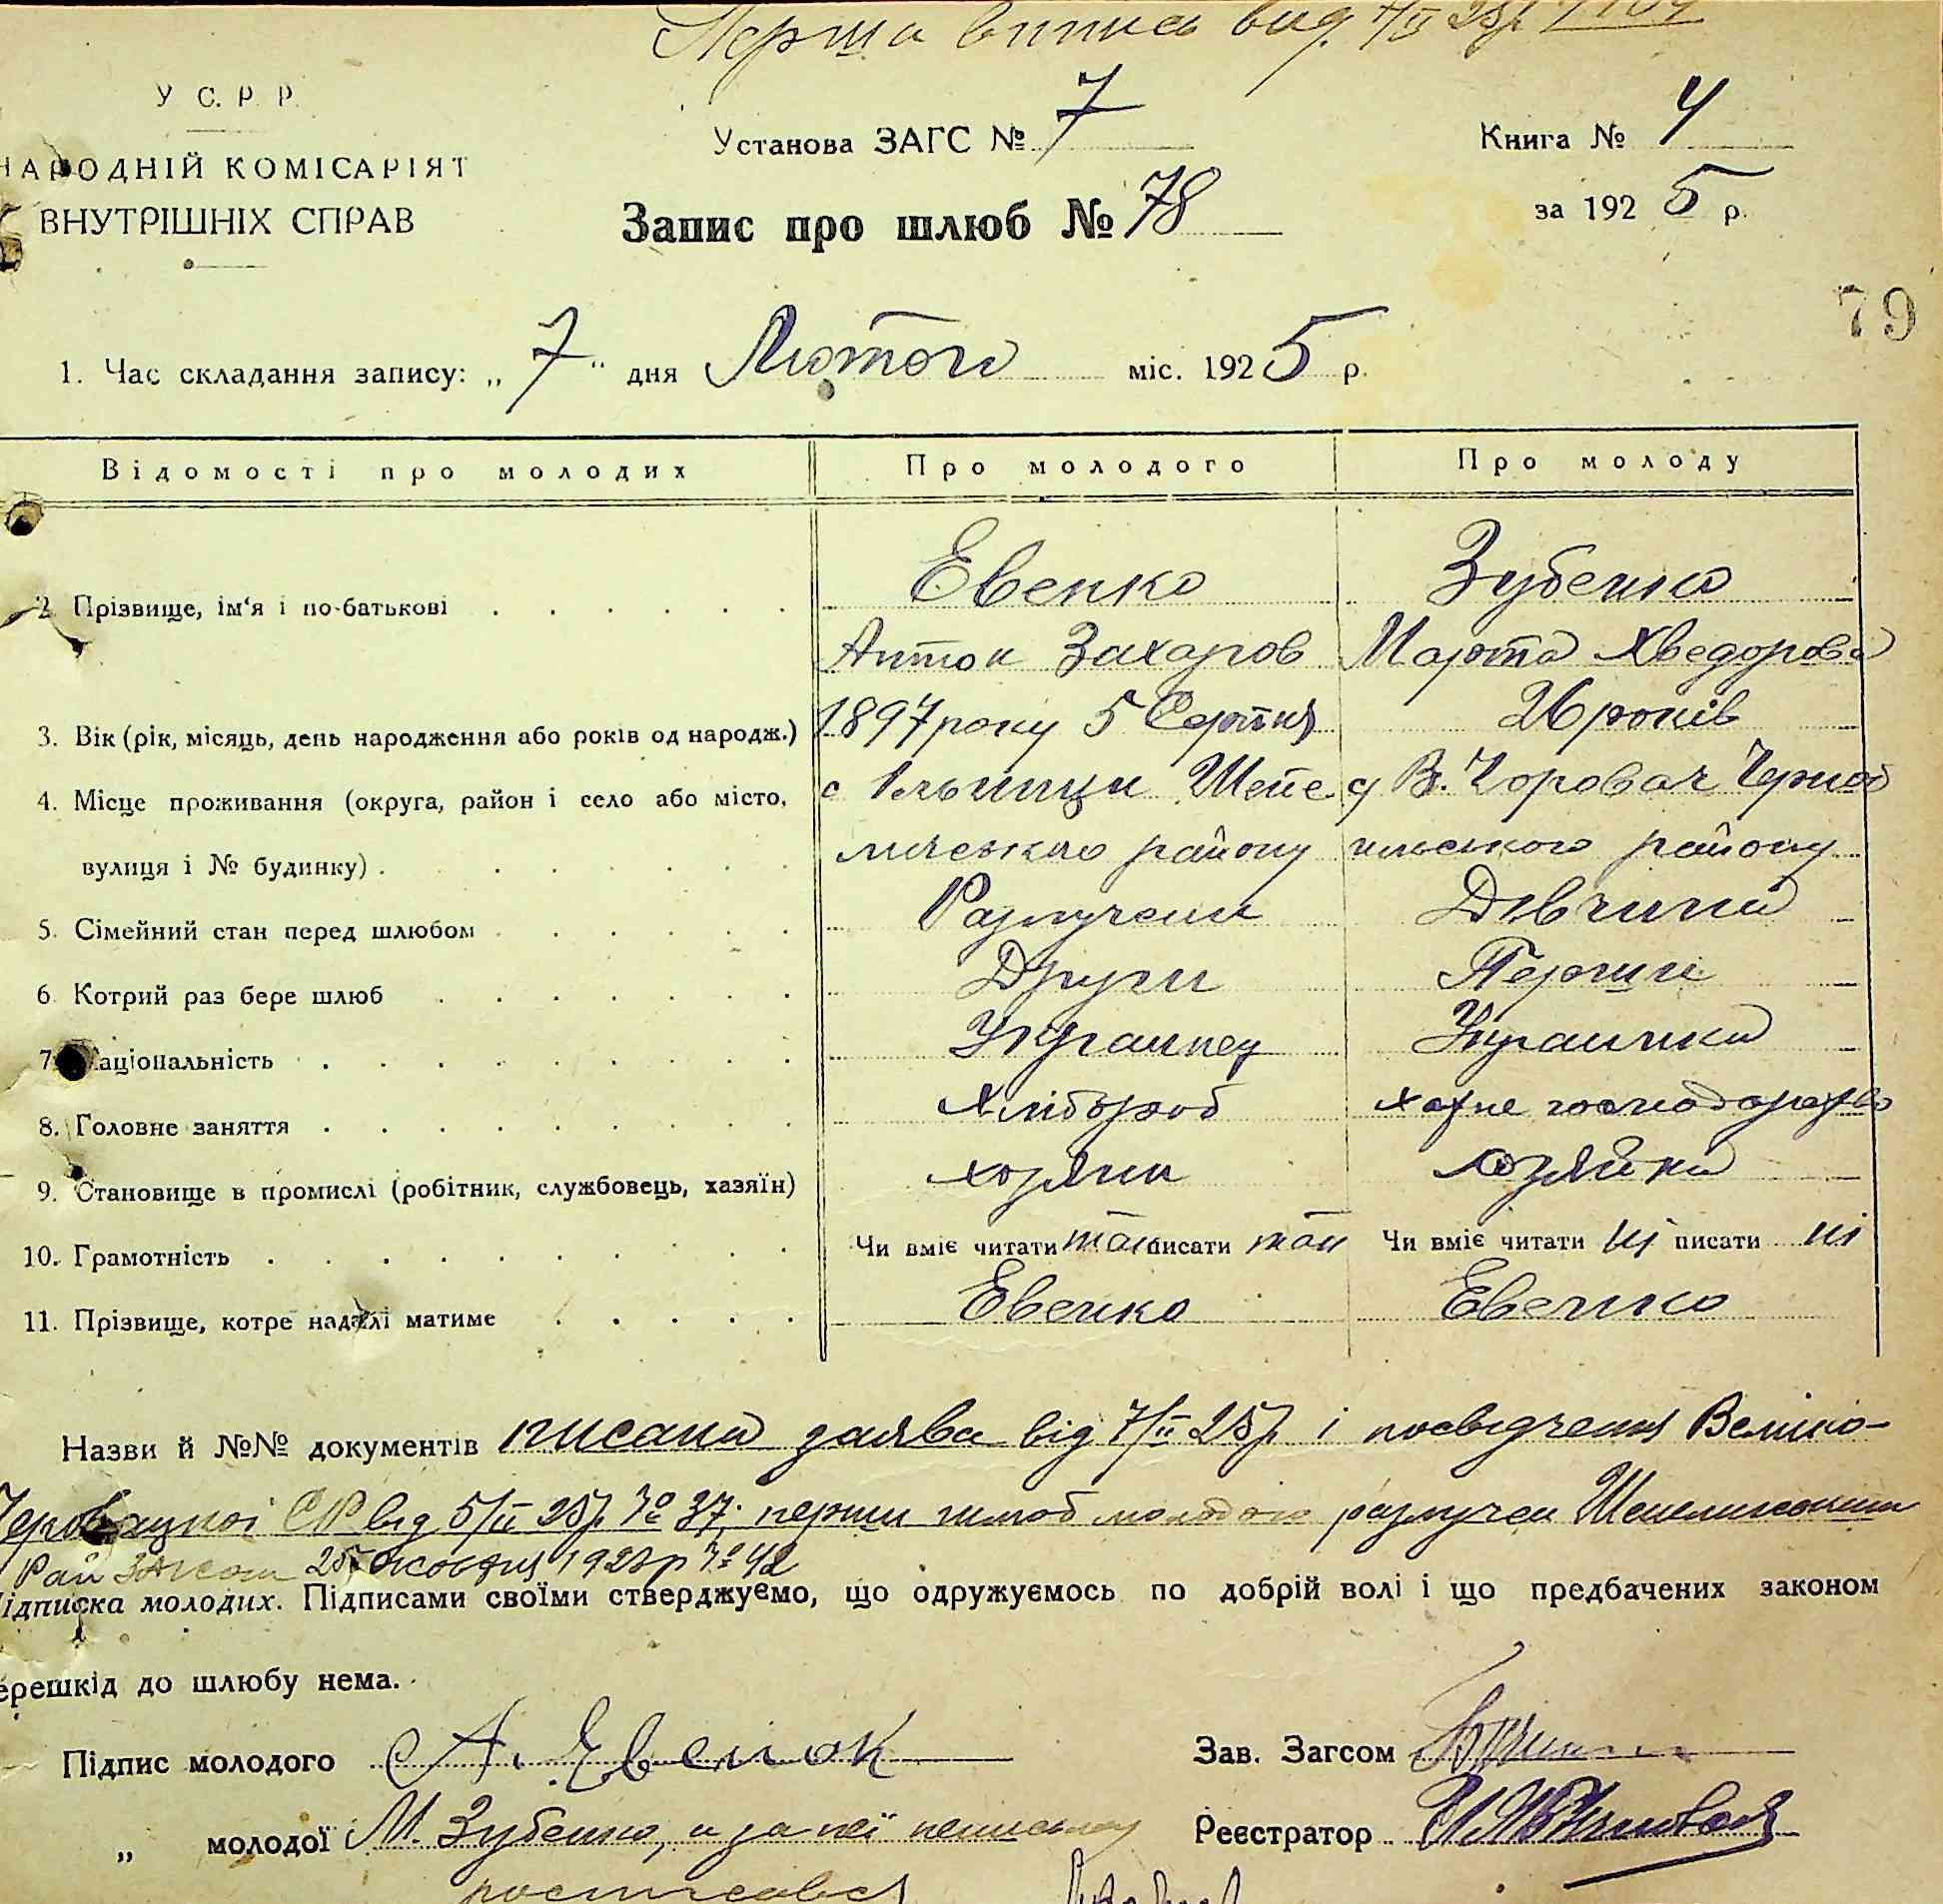 Перша випись вид. 7/II 25р.
У С. Р. Р.
Установа ЗАГС № 7
Книга № 4
НАРОДНІЙ КОМІСАРІЯТ
ВНУТРІШНІХ СПРАВ
Запис про шлюб № 78
за 1925 р.
79
1. Час складання запису: „7" дня Лютого міс. 1925 р.
Відомості про молодих Про молодого Про молоду
2 Прізвище, ім'я і по-батькові Евенко Зубенко
Антон Захаров Марта Хведорова
3. Вік (рік, місяць, день народження або років од народж.) 1897 року 5 Серпня 26 років
4. Місце проживання (округа, район і село або місто, с Ільинци Шепе с В.
вулиця і № будинку) личського району ильського району
5. Сімейний стан перед шлюбом Разлучени Дівчина
6. Котрий раз бере шлюб Други Перши
7. аціональність Украинец Украинка
8. Головне заняття Хлібороб хатне господарство
9. Становище в промислі (робітник, службовець, хазяїн) хозяин хозяйка
10. Грамотність Чи вміє читати так писати так Чи вміє читати ні писати ні
11. Прізвище, котре надалі матиме Евенко Евенко
Назви й №№ документів писана заява від 7/II 25р. і посвідчення Велико-
СР від 5/II 25р. № 37; перши шлюб молодого разлучен Шепелиським
Рай ЗАГСом 25 жовтня № 42
ідписка молодих. Підписами своїми стверджуємо, що одружуємось по добрій волі і що предбачених законом
ерешкід до шлюбу нема.
Підпис молодого А. Евенок Зав. Загсом
„ молодої М. Зубенко, а за неї Реєстратор